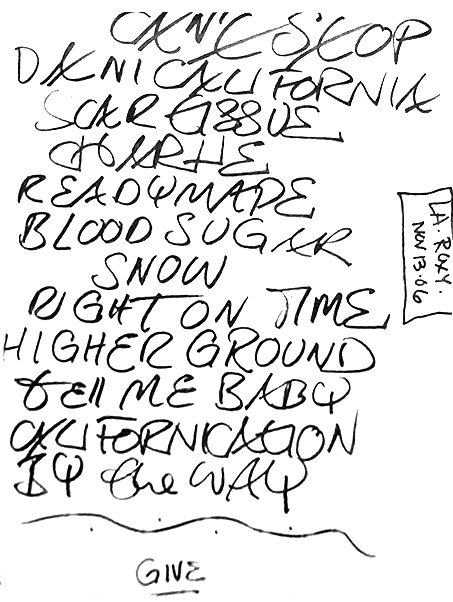 CAN'T STOP
DANI CALIFORNIA
SCAR TISSUE
CHARLIE
READYMADE
BLOOD SUGAR
SNOW
RIGHT ON TIME
HIGHER GROUND
tell ME BABY
CALIFORNICATION
BY the WAY
GIVE
L.A. ROXY.
NOV 13.06